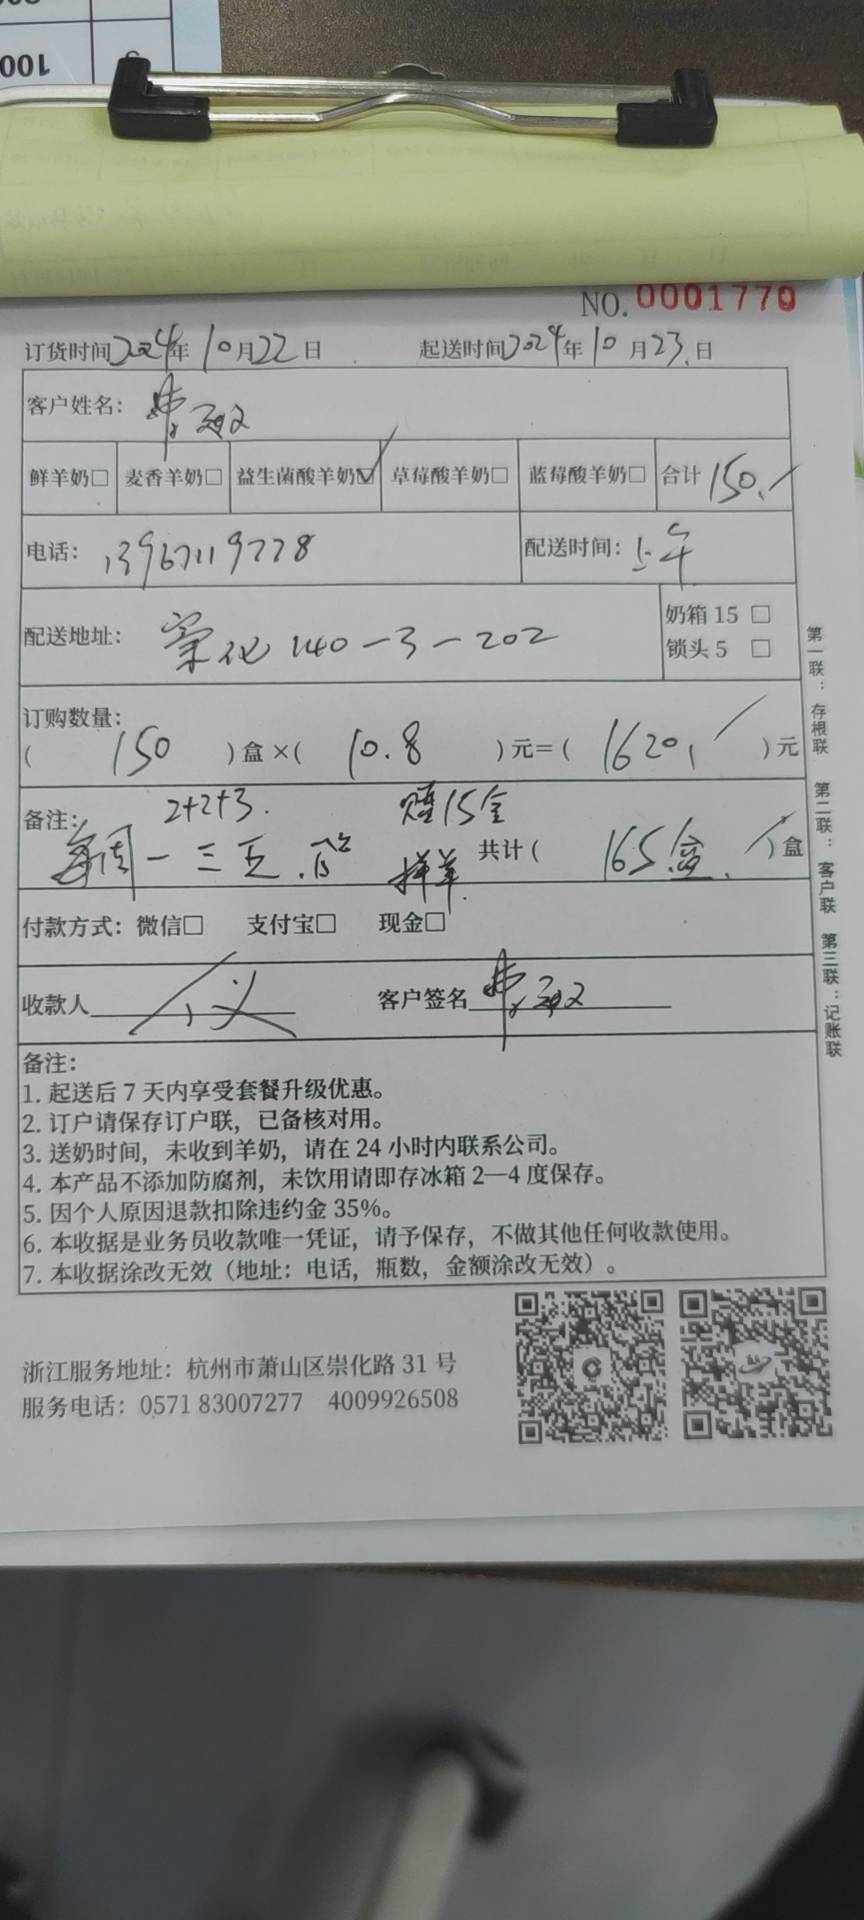 001
NO. 0001770
订货时间2024年10月22日 起送时间2024年10月23日
客户姓名：费敏
鲜羊奶□ 麦香羊奶□ 益生菌酸羊奶☑ 草莓酸羊奶□ 蓝莓酸羊奶□ 合计 150
电话： 配送时间：上午
配送地址：崇化 140-3-202
奶箱 15 □
锁头 5 □
订购数量：
( 150 )盒×( 10.8 )元=( 1620 )元
备注： 2+2+3. 赠15盒
每周一三五 共计( 165盒 )盒
付款方式：微信□ 支付宝□ 现金□
收款人 客户签名 费敏
备注：
1. 起送后 7 天内享受套餐升级优惠。
2. 订户请保存订户联，已备核对用。
3. 送奶时间，未收到羊奶，请在 24 小时内联系公司。
4. 本产品不添加防腐剂，未饮用请即存冰箱 2—4 度保存。
5. 因个人原因退款扣除违约金 35%。
6. 本收据是业务员收款唯一凭证，请予保存，不做其他任何收款使用。
7. 本收据涂改无效（地址：电话，瓶数，金额涂改无效）。
第一联：存根联 第二联：客户联 第三联：记账联
浙江服务地址：杭州市萧山区崇化路 31 号
服务电话：0571 83007277 4009926508